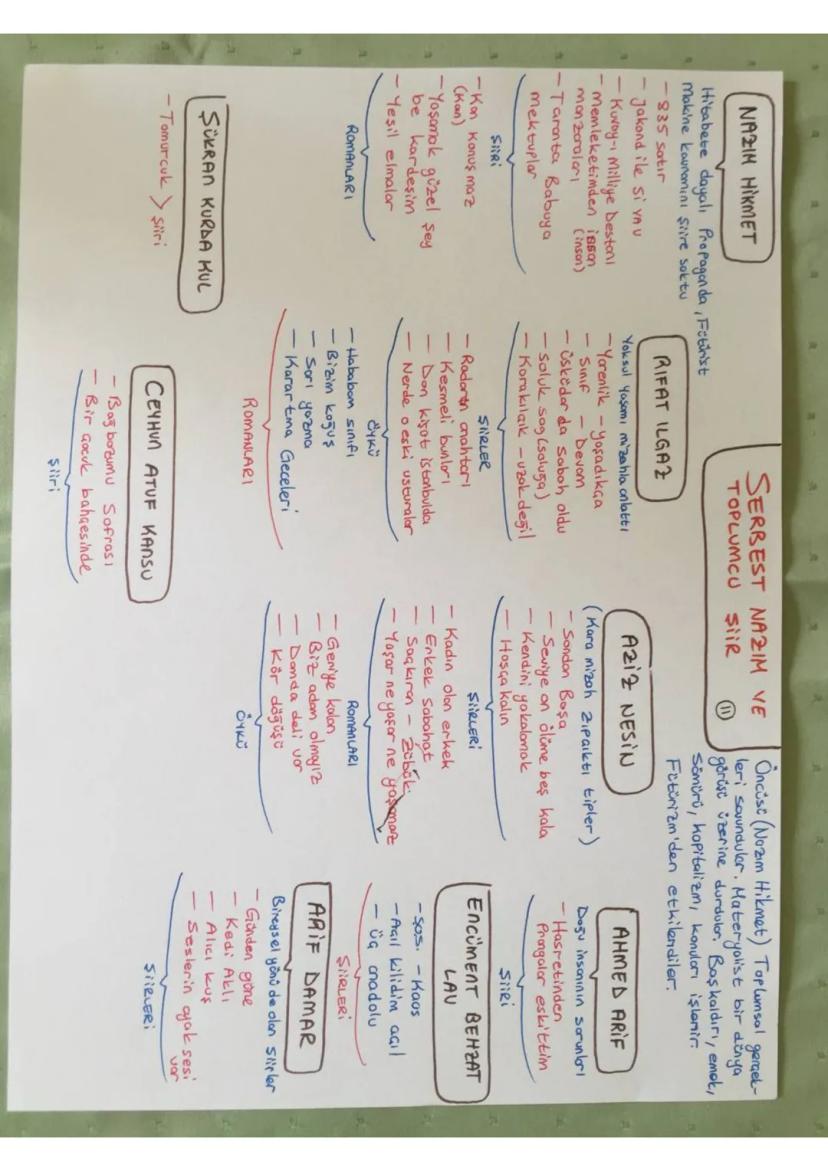 SERBEST NAZIM VE
TOPLUMCU ŞİİR (11)
Öncüsü (Nazım Hikmet) Toplumsal gerçek-
leri savundular. Materyalist bir dünya
görüşü üzerine durdular. Başkaldırı, emek,
Sömürü, kapitalizm, konuları işlenir.
Fütürizm'den etkilendiler.
NAZIM HİKMET
Hitabete dayalı Propaganda, Fütürist
Makine kavramını şiire soktu
- 835 satır
- Jakond ile Sİ YAU
- Kuvay-ı Milliye Destanı
- Memleketimden insan
manzaraları (insan)
- Taranta Babuya
mektuplar
ŞİİRİ
- Kan Konuşmaz
(Kan)
- Yaşamak güzel şey
be kardeşim
- Yeşil elmalar
ROMANLARI
RIFAT ILGAZ
Yoksul yaşamı mizahla anlattı
- Yarenlik - Yaşadıkça
- Sınıf - Devam
- Üsküdar da Sabah oldu
- Soluk sog (soluğa)
- Karakılçık - uzak değil
ŞİİRLER
- Radarın anahtarı
- Kesmeli bunları
- Don kişot İstanbulda
- Nerde o eski usturalar
ÖYKÜ
- Hababam sınıfı
- Bizim koğuş
- Sarı yazma
- Karartma Geceleri
ROMANLARI
AZİZ NESİN
(Kara mizah zıpçıktı tipler)
- Sondan Başa
- Seviye on ölüme beş kala
- Kendini yakalamak
- Hoşça kalın
ŞİİRLERİ
- Kadın olan erkek
- Erkek Sabahat
- Saçkıran - Zübük
- Yaşar ne yaşar ne yaşamaz
ROMANLARI
- Geriye kalan
- Biz adam olmayız
- Damda deli var
- Kör döğüşü
ÖYKÜ
AHMED ARİF
Doğu insanının sorunları
- Hasretinden
Prangalar eskittim
ŞİİRİ
ENCÜMENT BEHZAT
LAV
- S.O.S. - Kaos
- Açıl kilidim açıl
- Üç anadolu
ŞİİRLERİ
ARİF DAMAR
Bireysel yönü de olan şiirler
- Günden güne
- Kedi Aklı
- Alıcı Kuş
- Seslerin ayak sesi
var
ŞİİRLERİ
ŞÜKRAN KURDAKUL
- Tomurcuk > Şiiri
CEYHUN ATUF KANSU
- Bağbozumu Sofrası
- Bir çocuk bahçesinde
Şiiri